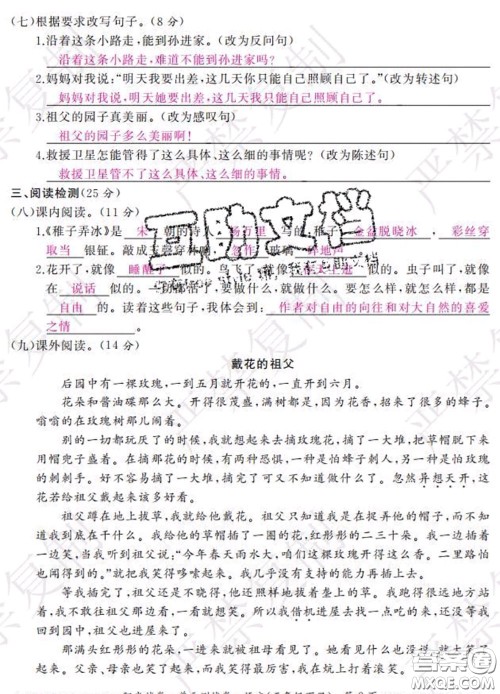 (七)根据要求改写句子。(8 分)
1.沿着这条小路走,能到孙进家。(改为反问句)
沿着这条小路走,难道不能到孙进家吗?
2.妈妈对我说:“明天我要出差,这几天你只能自己照顾自己了。”(改为转述句)
妈妈对我说,明天她要出差,这几天我只能自己照顾自己了。
3.祖父的园子真美丽。(改为感叹句)
祖父的园子多么美丽啊!
4.救援卫星怎能管得了这么具体、这么细的事情呢?(改为陈述句)
救援卫星管不了这么具体、这么细的事情。
三、阅读检测(25 分)
(八)课内阅读。(11 分)
1.《稚子弄冰》是 宋 朝的诗人 杨万里 写的,稚子 金盆脱晓冰 , 彩丝穿
取当 银钲。敲成玉磬穿林响,忽作玻璃 碎地声
2.花开了,就像 睡醒了 似的。鸟飞了,就像 似的。虫子叫了,就像
在 说话 似的。一切都活了,要做什么,就做什么。要怎么样,就怎么样,都是
自由 的。读着这些句子,我体会到: 作者对自由的向往和对大自然的喜爱
之情 。
(九)课外阅读。(14 分)
戴花的祖父
后园中有一棵玫瑰,一到五月就开花的,一直开到六月。
花朵和酱油碟那么大。开得很茂盛,满树都是,因为花香,招来了很多的蜂子。
嗡嗡的在玫瑰树那儿闹着。
别的一切都玩厌了的时候,我就想起来去摘玫瑰花,摘了一大堆,把草帽脱下来
用帽兜子盛着。在摘那花的时候,有两种恐惧,一种是怕蜂子刺人,另一种是怕玫瑰
的刺刺手。好不容易摘了一大堆,摘完了可又不知道做什么了。忽然异想天开,这
花若给祖父戴起来该多好看。
祖父蹲在地上拔草,我就给他戴花。祖父只知道我是在捉弄他的帽子,而不知
道我到底是在干什么。我给他的草帽插了一圈的花,红彤彤的二三十朵。我一边插
着一边笑,当我听到祖父说:“今年春天雨水大,咱们这棵玫瑰开得这么香。二里路怕
也闻得到的。”就把我笑得哆嗦起来。我几乎没有支持的能力再插上去。
等我插完了,祖父还是安然的不晓得,他还照样地拔着垄上的草。我跑得很远
地站着,我不敢往祖父那边看,一看就想笑。所以我借机进屋去找一点吃的来,还没有等我回
到园中,祖父也进屋来了。
那满头红彤彤的花朵,一进来就被祖母看见了。她看见什么也没说,就大笑了
起来。父亲、母亲也笑了起来,